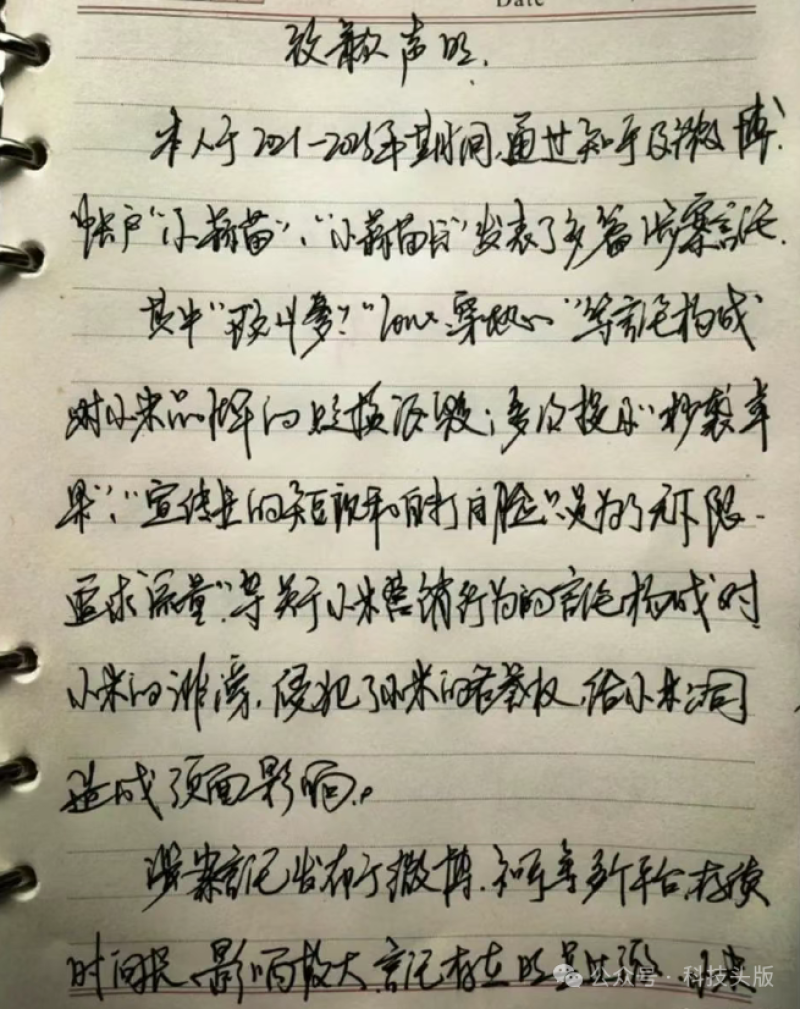 Date
致歉声明.
本人于2021-2025年期间,通过知乎及微博
帐户“小蒜苗”、“小蒜苗日”发表了多篇涉案言论.
其中“耍猴”等言论构成
对小米品牌的 诋毁;多次提及“抄袭苹
果”、“宣传上的 和自打自脸只是为了无下限
追求流量”等关于小米营销行为的言论构成对
小米的诽谤,侵犯了小米的名誉权,给小米公司
造成负面影响。
涉案言论发布于微博、知乎等多个平台,存续
时间长、影响较大,言论存在明显
公众号·科技头版